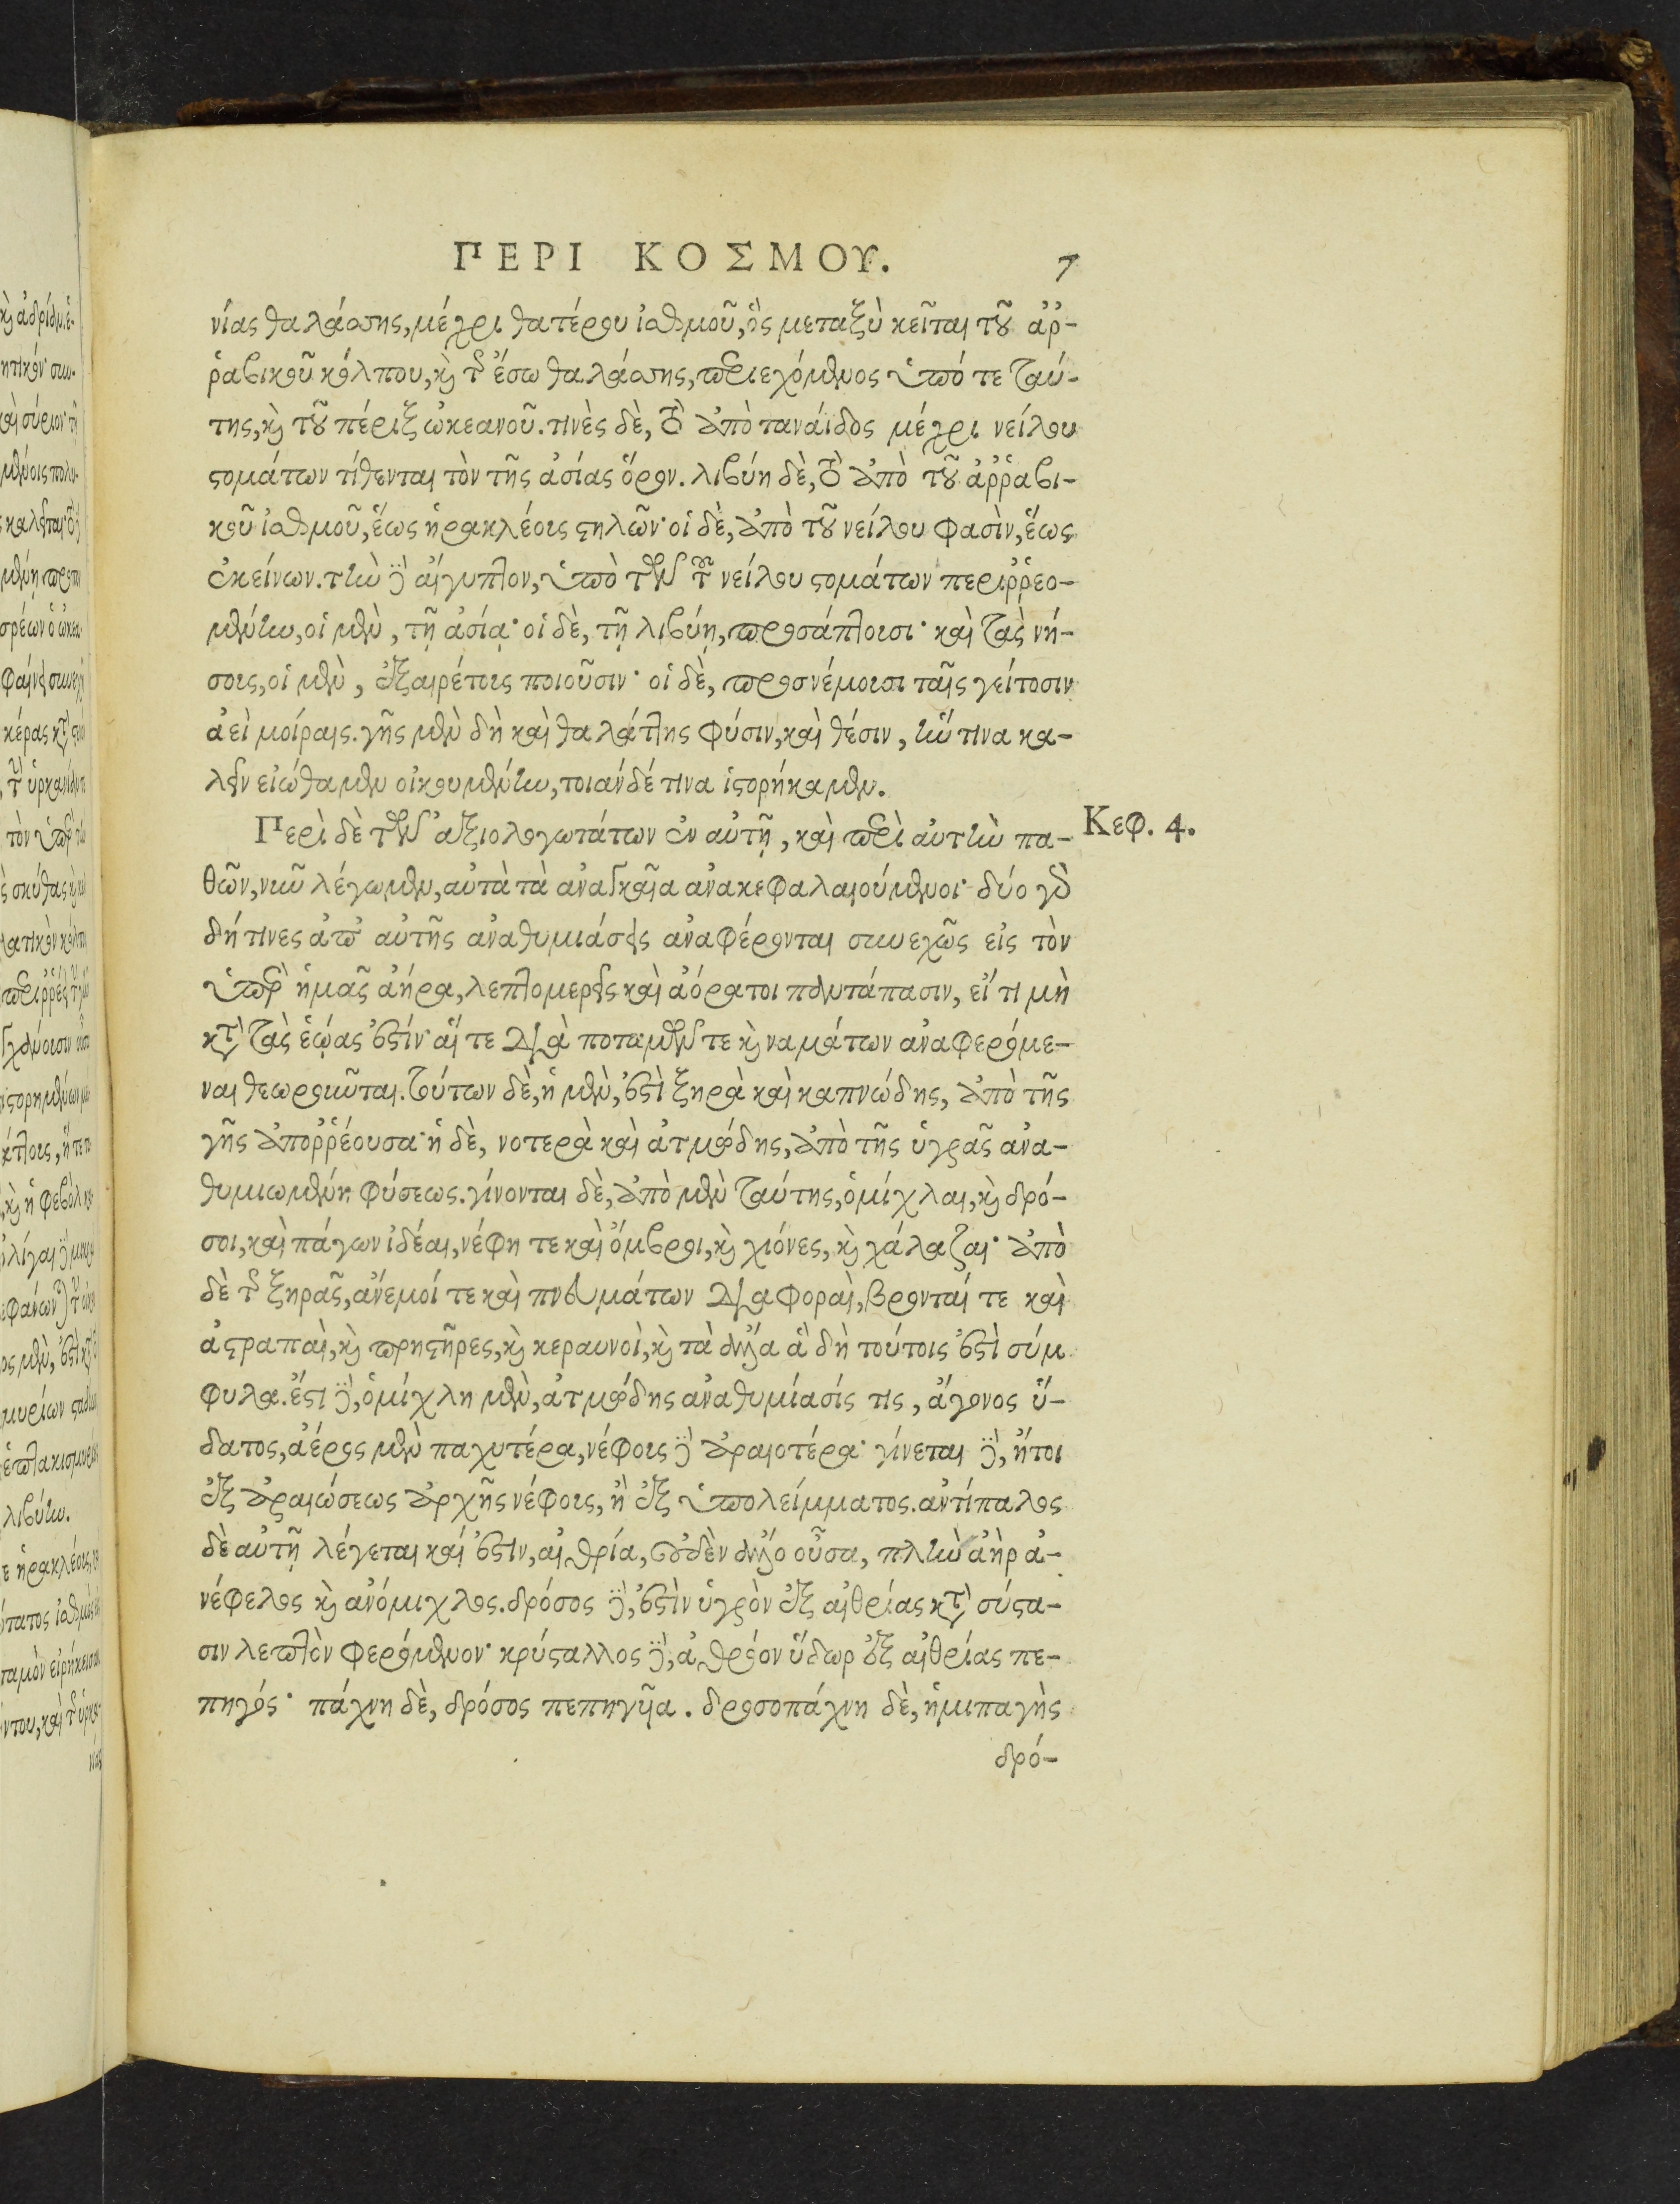 ΠΕΡΙ ΚΟΣΜΟΥ. 7
νίας θαλάσσης, μέχρι θατέρου ἰσθμοῦ, ὃς μεταξὺ κεῖται τοῦ ἀῤ-
ῥαβικοῦ κόλπου, καὶ τῆς ἔσω θαλάσσης, περιεχόμενος ὑπό τε ταύ-
της, καὶ τοῦ πέριξ ὠκεανοῦ. τινὲς δὲ, τὸ ἀπὸ τανάϊδος μέχρι νείλου
στομάτων τίθενται τὸν τῆς ἀσίας ὅρον. λιβύη δὲ, τὸ ἀπὸ τοῦ ἀῤῥαβι-
κοῦ ἰσθμοῦ, ἕως ἡρακλέους στηλῶν· οἱ δὲ, ἀπὸ τοῦ νείλου φασὶν, ἕως
ἐκείνων. τὴν δὲ αἴγυπτον, ὑπὸ τῶν τοῦ νείλου στομάτων περιῤῥεο-
μένην, οἱ μὲν, τῇ ἀσίᾳ· οἱ δὲ, τῇ λιβύῃ, προσάπτουσι· καὶ τὰς νή-
σους, οἱ μὲν, ἐξαιρέτους ποιοῦσιν· οἱ δὲ, προσνέμουσι ταῖς γείτοσιν
ἀεὶ μοίραις. γῆς μὲν δὴ καὶ θαλάττης φύσιν, καὶ θέσιν, ἥντινα κα-
λεῖν εἰώθαμεν οἰκουμένην, τοιάνδέ τινα ἱστορήκαμεν.
Περὶ δὲ τῶν ἀξιολογωτάτων ἐν αὐτῇ, καὶ περὶ αὐτὴν πα- Κεφ. 4.
θῶν, νῦν λέγωμεν, αὐτὰ τὰ ἀναγκαῖα ἀνακεφαλαιούμενοι· δύο γὰρ
δή τινες ἀπ' αὐτῆς ἀναθυμιάσεις ἀναφέρονται συνεχῶς εἰς τὸν
ὑπὲρ ἡμᾶς ἀήρα, λεπτομερεῖς καὶ ἀόρατοι παντάπασιν, εἴ τι μὴ
κατὰ τὰς ἑῴας ἐστίν· αἵ τε διὰ ποταμῶν τε καὶ ναμάτων ἀναφερόμε-
ναι θεωροῦνται. τούτων δὲ, ἡ μὲν, ἐστὶ ξηρὰ καὶ καπνώδης, ἀπὸ τῆς
γῆς ἀποῤῥέουσα· ἡ δὲ, νοτερὰ καὶ ἀτμώδης, ἀπὸ τῆς ὑγρᾶς ἀνα-
θυμιωμένη φύσεως. γίνονται δὲ, ἀπὸ μὲν ταύτης, ὁμίχλαι, καὶ δρό-
σοι, καὶ πάγων ἰδέαι, νέφη τε καὶ ὄμβροι, καὶ χιόνες, καὶ χάλαζαι· ἀπὸ
δὲ τῆς ξηρᾶς, ἄνεμοί τε καὶ πνευμάτων διαφοραὶ, βρονταί τε καὶ
ἀστραπαὶ, καὶ πρηστῆρες, καὶ κεραυνοὶ, καὶ τὰ ἄλλα ἃ δὴ τούτοις ἐστὶ σύμ
φυλα. ἔστι δὲ, ὁμίχλη μὲν, ἀτμώδης ἀναθυμίασίς τις, ἄγονος ὕ-
δατος, ἀέρος μὲν παχυτέρα, νέφους δὲ ἀραιοτέρα· γίνεται δὲ, ἤτοι
ἐξ ἀραιώσεως ἀρχῆς νέφους, ἢ ἐξ ὑπολείμματος. ἀντίπαλος
δὲ αὐτῇ λέγεται καί ἐστιν, αἰθρία, οὐδὲν ἄλλο οὖσα, πλὴν ἀὴρ ἀ-
νέφελος καὶ ἀνόμιχλος. δρόσος δὲ, ἐστὶν ὑγρὸν ἐξ αἰθρίας κατὰ σύστα-
σιν λεπτὸν φερόμενον· κρύσταλλος δὲ, ἀθρόον ὕδωρ ἐξ αἰθρίας πε-
πηγός· πάχνη δὲ, δρόσος πεπηγῦια. δροσοπάχνη δὲ, ἡμιπαγὴς
δρό-